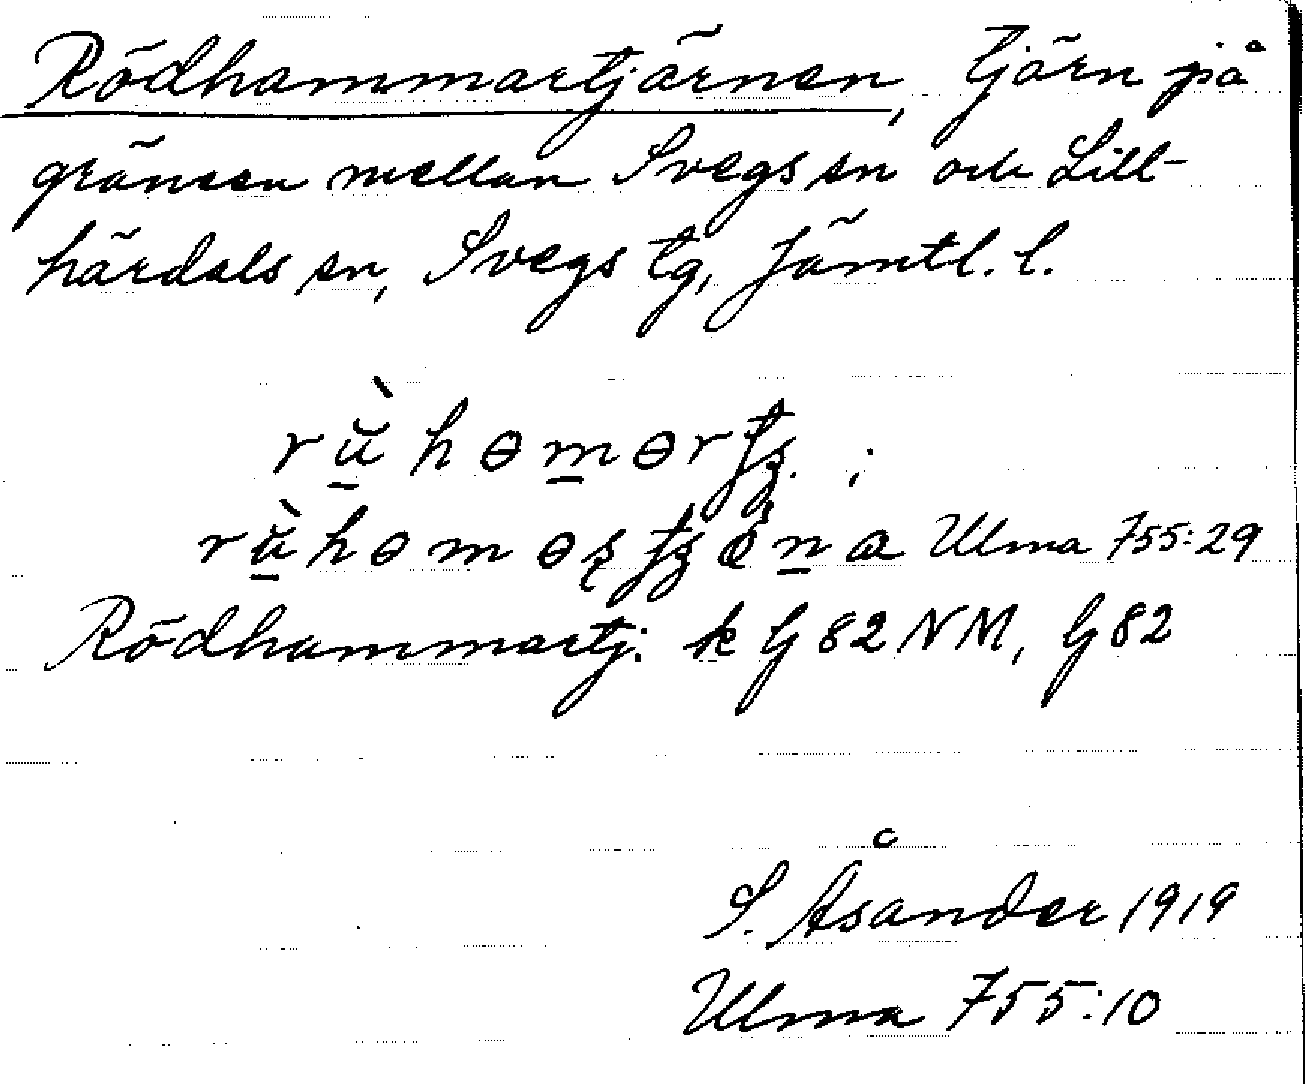 Rödhammartjärnen, tjärn på
gränsen mellan Svegs sn och Lill-
härdals sn, Svegs tg, Jämtl. l.
Ulma 755:29
Rödhammartj. k G 82 NM, G 82
S. Åsander 1919
Ulma 755:10